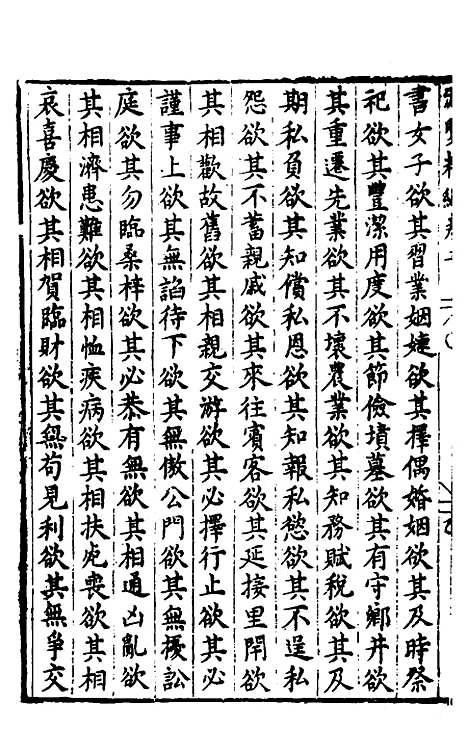 書女子欲其習業姻娕欲其擇偶婚姻欲其及時祭
祀欲其豐潔用度欲其節儉墳墓欲其有守鄉井欲
其重遷先業欲其不壞農業欲其知務賦稅欲其及
期私負欲其知償私恩欲其知報私慾欲其不逞私
怨欲其不蓄親戚欲其來往賓客欲其延接里閈欲
其相歡故舊欲其相親交游欲其必擇行止欲其必
謹事上欲其無謟待下欲其無傲公門欲其無擾訟
庭欲其勿臨桑梓欲其必恭有無欲其相通凶亂欲
其相濟患難欲其相恤疾病欲其相扶死喪欲其相
哀喜慶欲其相賀臨財欲其無苟見利欲其無爭交